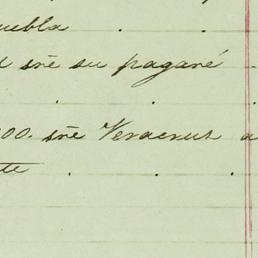 uebla . .
sre su pagaré
. . .
00. sre Veracruz a
te . . .